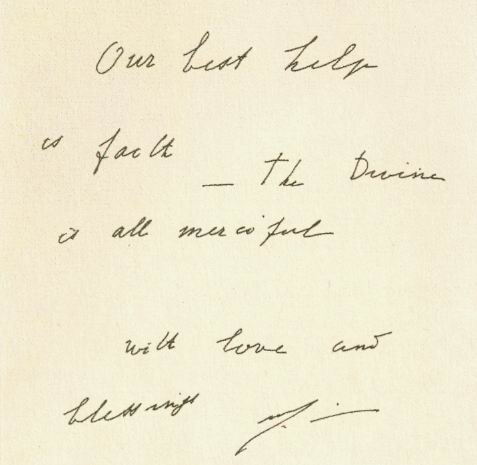 Our best help
is faith — The Divine
is all merciful
with love and
blessings